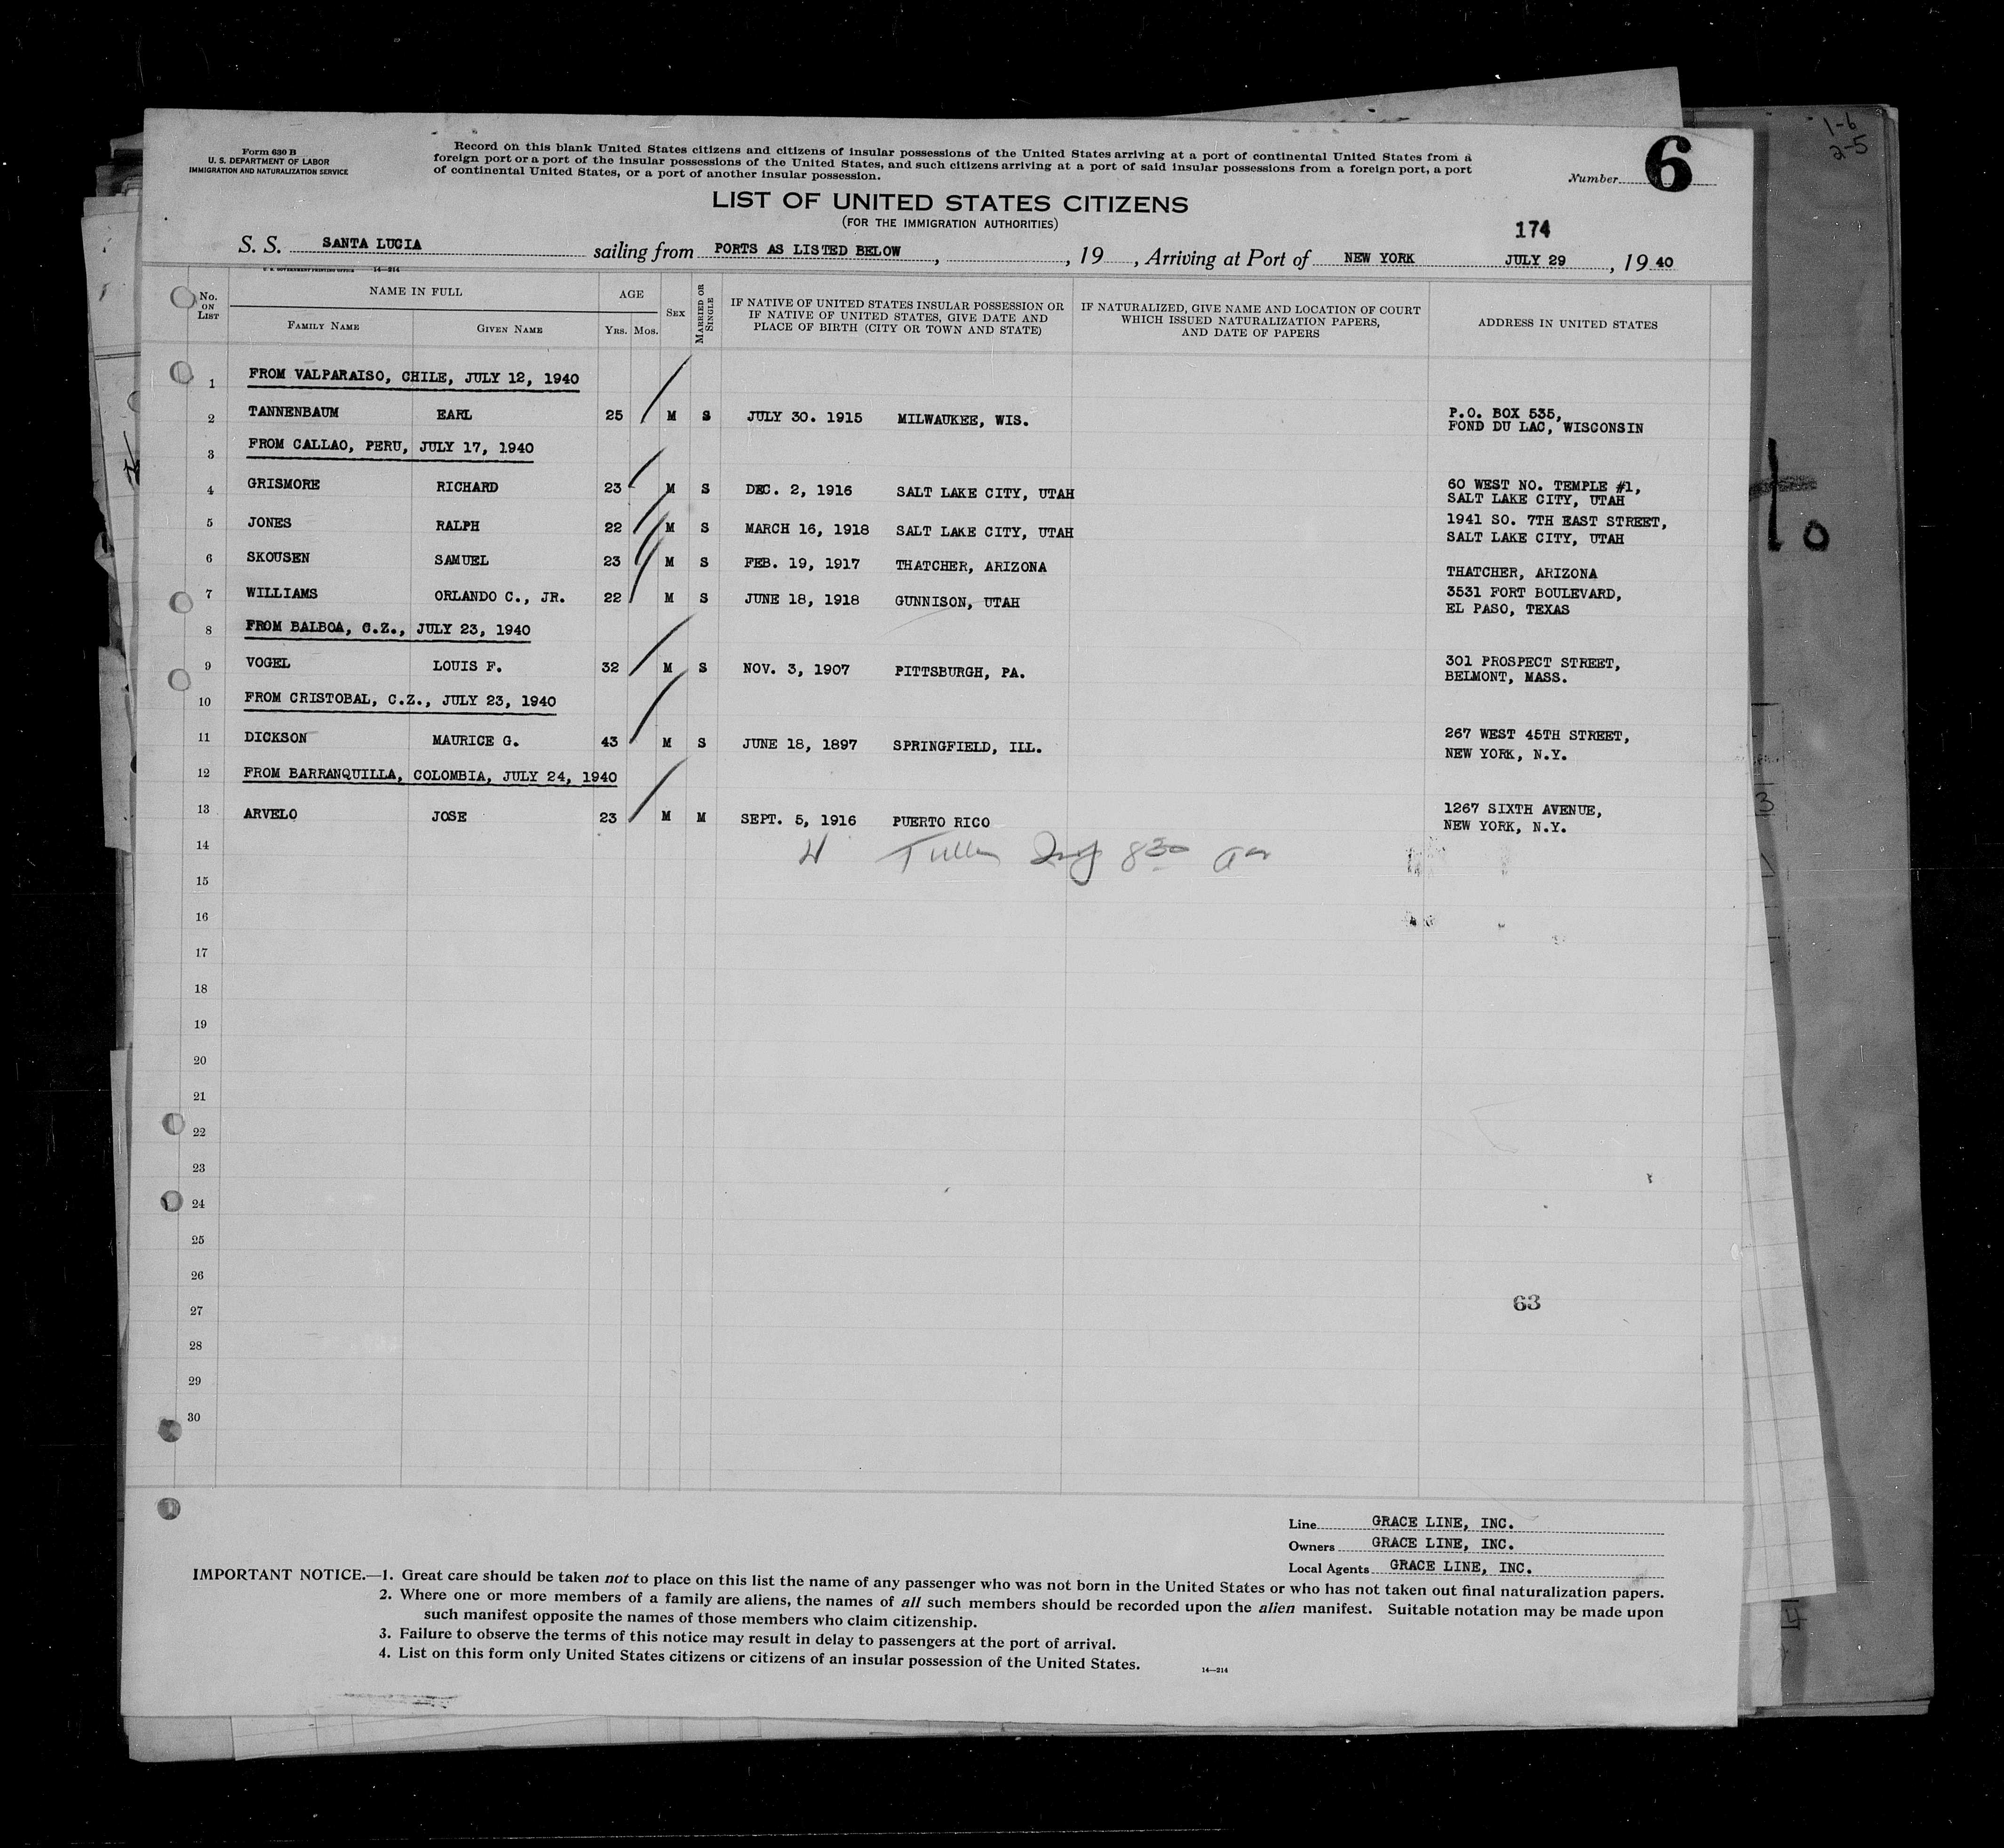 1-6
2-5
Form 630 B
U. S. DEPARTMENT OF LABOR
IMMIGRATION AND NATURALIZATION SERVICE
Record on this blank United States citizens and citizens of insular possessions of the United States arriving at a port of continental United States from a
foreign port or a port of the insular possessions of the United States, and such citizens arriving at a port of said insular possessions from a foreign port, a port
of continental United States, or a port of another insular possession.
Number 6
LIST OF UNITED STATES CITIZENS
(FOR THE IMMIGRATION AUTHORITIES)
174
S. S. SANTA LUCIA sailing from PORTS AS LISTED BELOW, , 19 , Arriving at Port of NEW YORK JULY 29, 1940
U. S. GOVERNMENT PRINTING OFFICE 14-214
No. ON LIST
NAME IN FULL
FAMILY NAME GIVEN NAME
AGE
YRS. MOS.
SEX
MARRIED OR SINGLE
IF NATIVE OF UNITED STATES INSULAR POSSESSION OR
IF NATIVE OF UNITED STATES, GIVE DATE AND
PLACE OF BIRTH (CITY OR TOWN AND STATE)
IF NATURALIZED, GIVE NAME AND LOCATION OF COURT
WHICH ISSUED NATURALIZATION PAPERS,
AND DATE OF PAPERS
ADDRESS IN UNITED STATES
1 FROM VALPARAISO, CHILE, JULY 12, 1940
2 TANNENBAUM EARL 25 M S JULY 30. 1915 MILWAUKEE, WIS. P.O. BOX 535,
FOND DU LAC, WISCONSIN
3 FROM CALLAO, PERU, JULY 17, 1940
4 GRISMORE RICHARD 23 M S DEC. 2, 1916 SALT LAKE CITY, UTAH 60 WEST NO. TEMPLE #1,
SALT LAKE CITY, UTAH
5 JONES RALPH 22 M S MARCH 16, 1918 SALT LAKE CITY, UTAH 1941 SO. 7TH EAST STREET,
SALT LAKE CITY, UTAH
6 SKOUSEN SAMUEL 23 M S FEB. 19, 1917 THATCHER, ARIZONA THATCHER, ARIZONA
7 WILLIAMS ORLANDO C., JR. 22 M S JUNE 18, 1918 GUNNISON, UTAH 3531 FORT BOULEVARD,
EL PASO, TEXAS
8 FROM BALBOA, C.Z., JULY 23, 1940
9 VOGEL LOUIS F. 32 M S NOV. 3, 1907 PITTSBURGH, PA. 301 PROSPECT STREET,
BELMONT, MASS.
10 FROM CRISTOBAL, C.Z., JULY 23, 1940
11 DICKSON MAURICE G. 43 M S JUNE 18, 1897 SPRINGFIELD, ILL. 267 WEST 45TH STREET,
NEW YORK, N.Y.
12 FROM BARRANQUILLA, COLOMBIA, JULY 24, 1940
13 ARVELO JOSE 23 M M SEPT. 5, 1916 PUERTO RICO 1267 SIXTH AVENUE,
NEW YORK, N.Y.
14 830
15
16
17
18
19
20
21
22
23
24
25
26
27 63
28
29
30
Line GRACE LINE, INC.
Owners GRACE LINE, INC.
Local Agents GRACE LINE, INC.
IMPORTANT NOTICE.—1. Great care should be taken not to place on this list the name of any passenger who was not born in the United States or who has not taken out final naturalization papers.
2. Where one or more members of a family are aliens, the names of all such members should be recorded upon the alien manifest. Suitable notation may be made upon
such manifest opposite the names of those members who claim citizenship.
3. Failure to observe the terms of this notice may result in delay to passengers at the port of arrival.
4. List on this form only United States citizens or citizens of an insular possession of the United States.
14—214